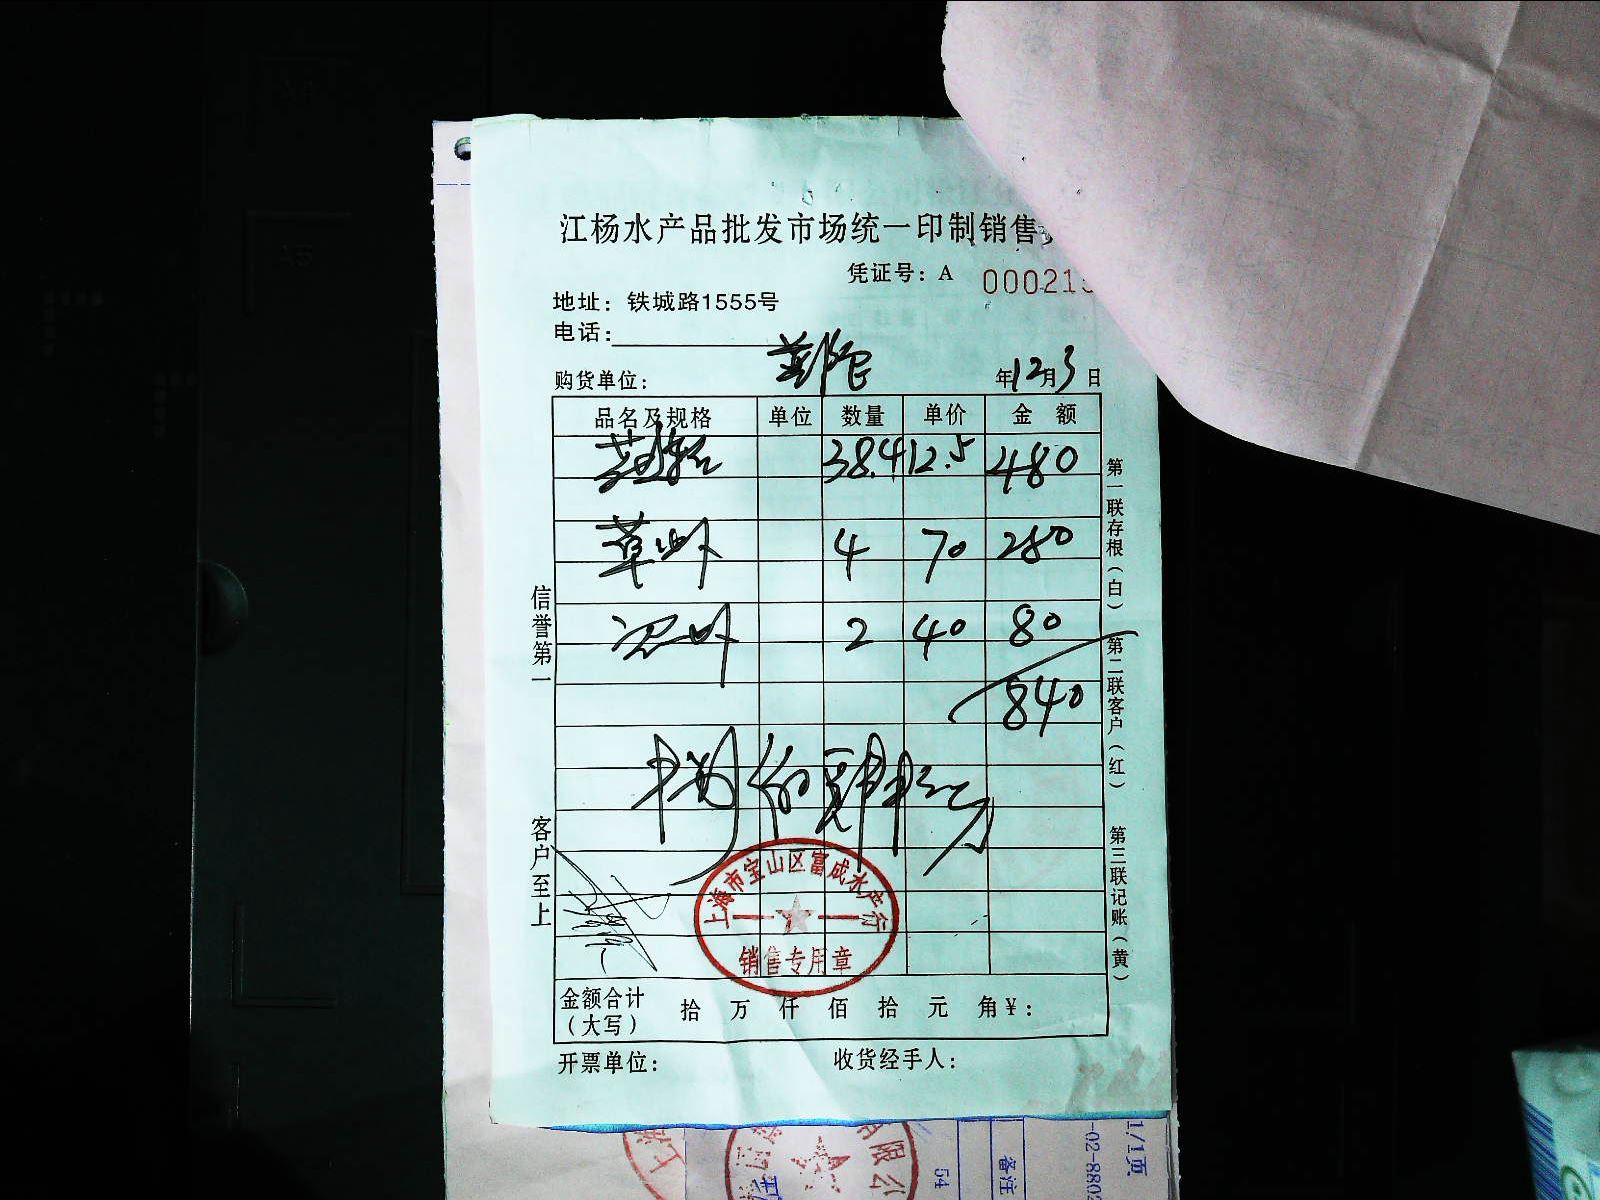 江杨水产品批发市场统一印制销售
凭证号：A 00021
地址：铁城路1555号
电话：
购货单位：
年12月3日
品名及规格 单位 数量 单价 金 额
38.4 12.5 480
草虾 4 70 280
2 40 80
840
信誉第一
客户至上
第一联存根（白）
第二联客户（红）
第三联记账（黄）
上海市宝山区富成水产行
销售专用章
金额合计（大写） 拾 万 仟 佰 拾 元 角 ¥：
开票单位： 收货经手人：
限公
54
备注
1/1页